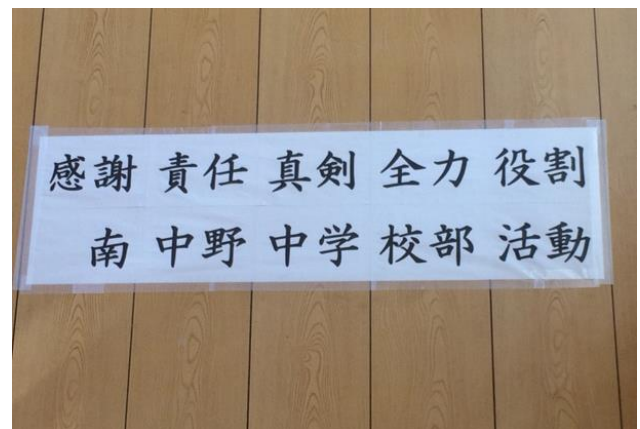 感謝 責任 真剣 全力 役割
南 中野 中学 校部 活動